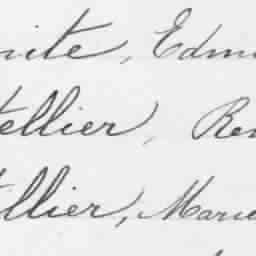 nite, Edm
tellier, Ren
llier, Marie